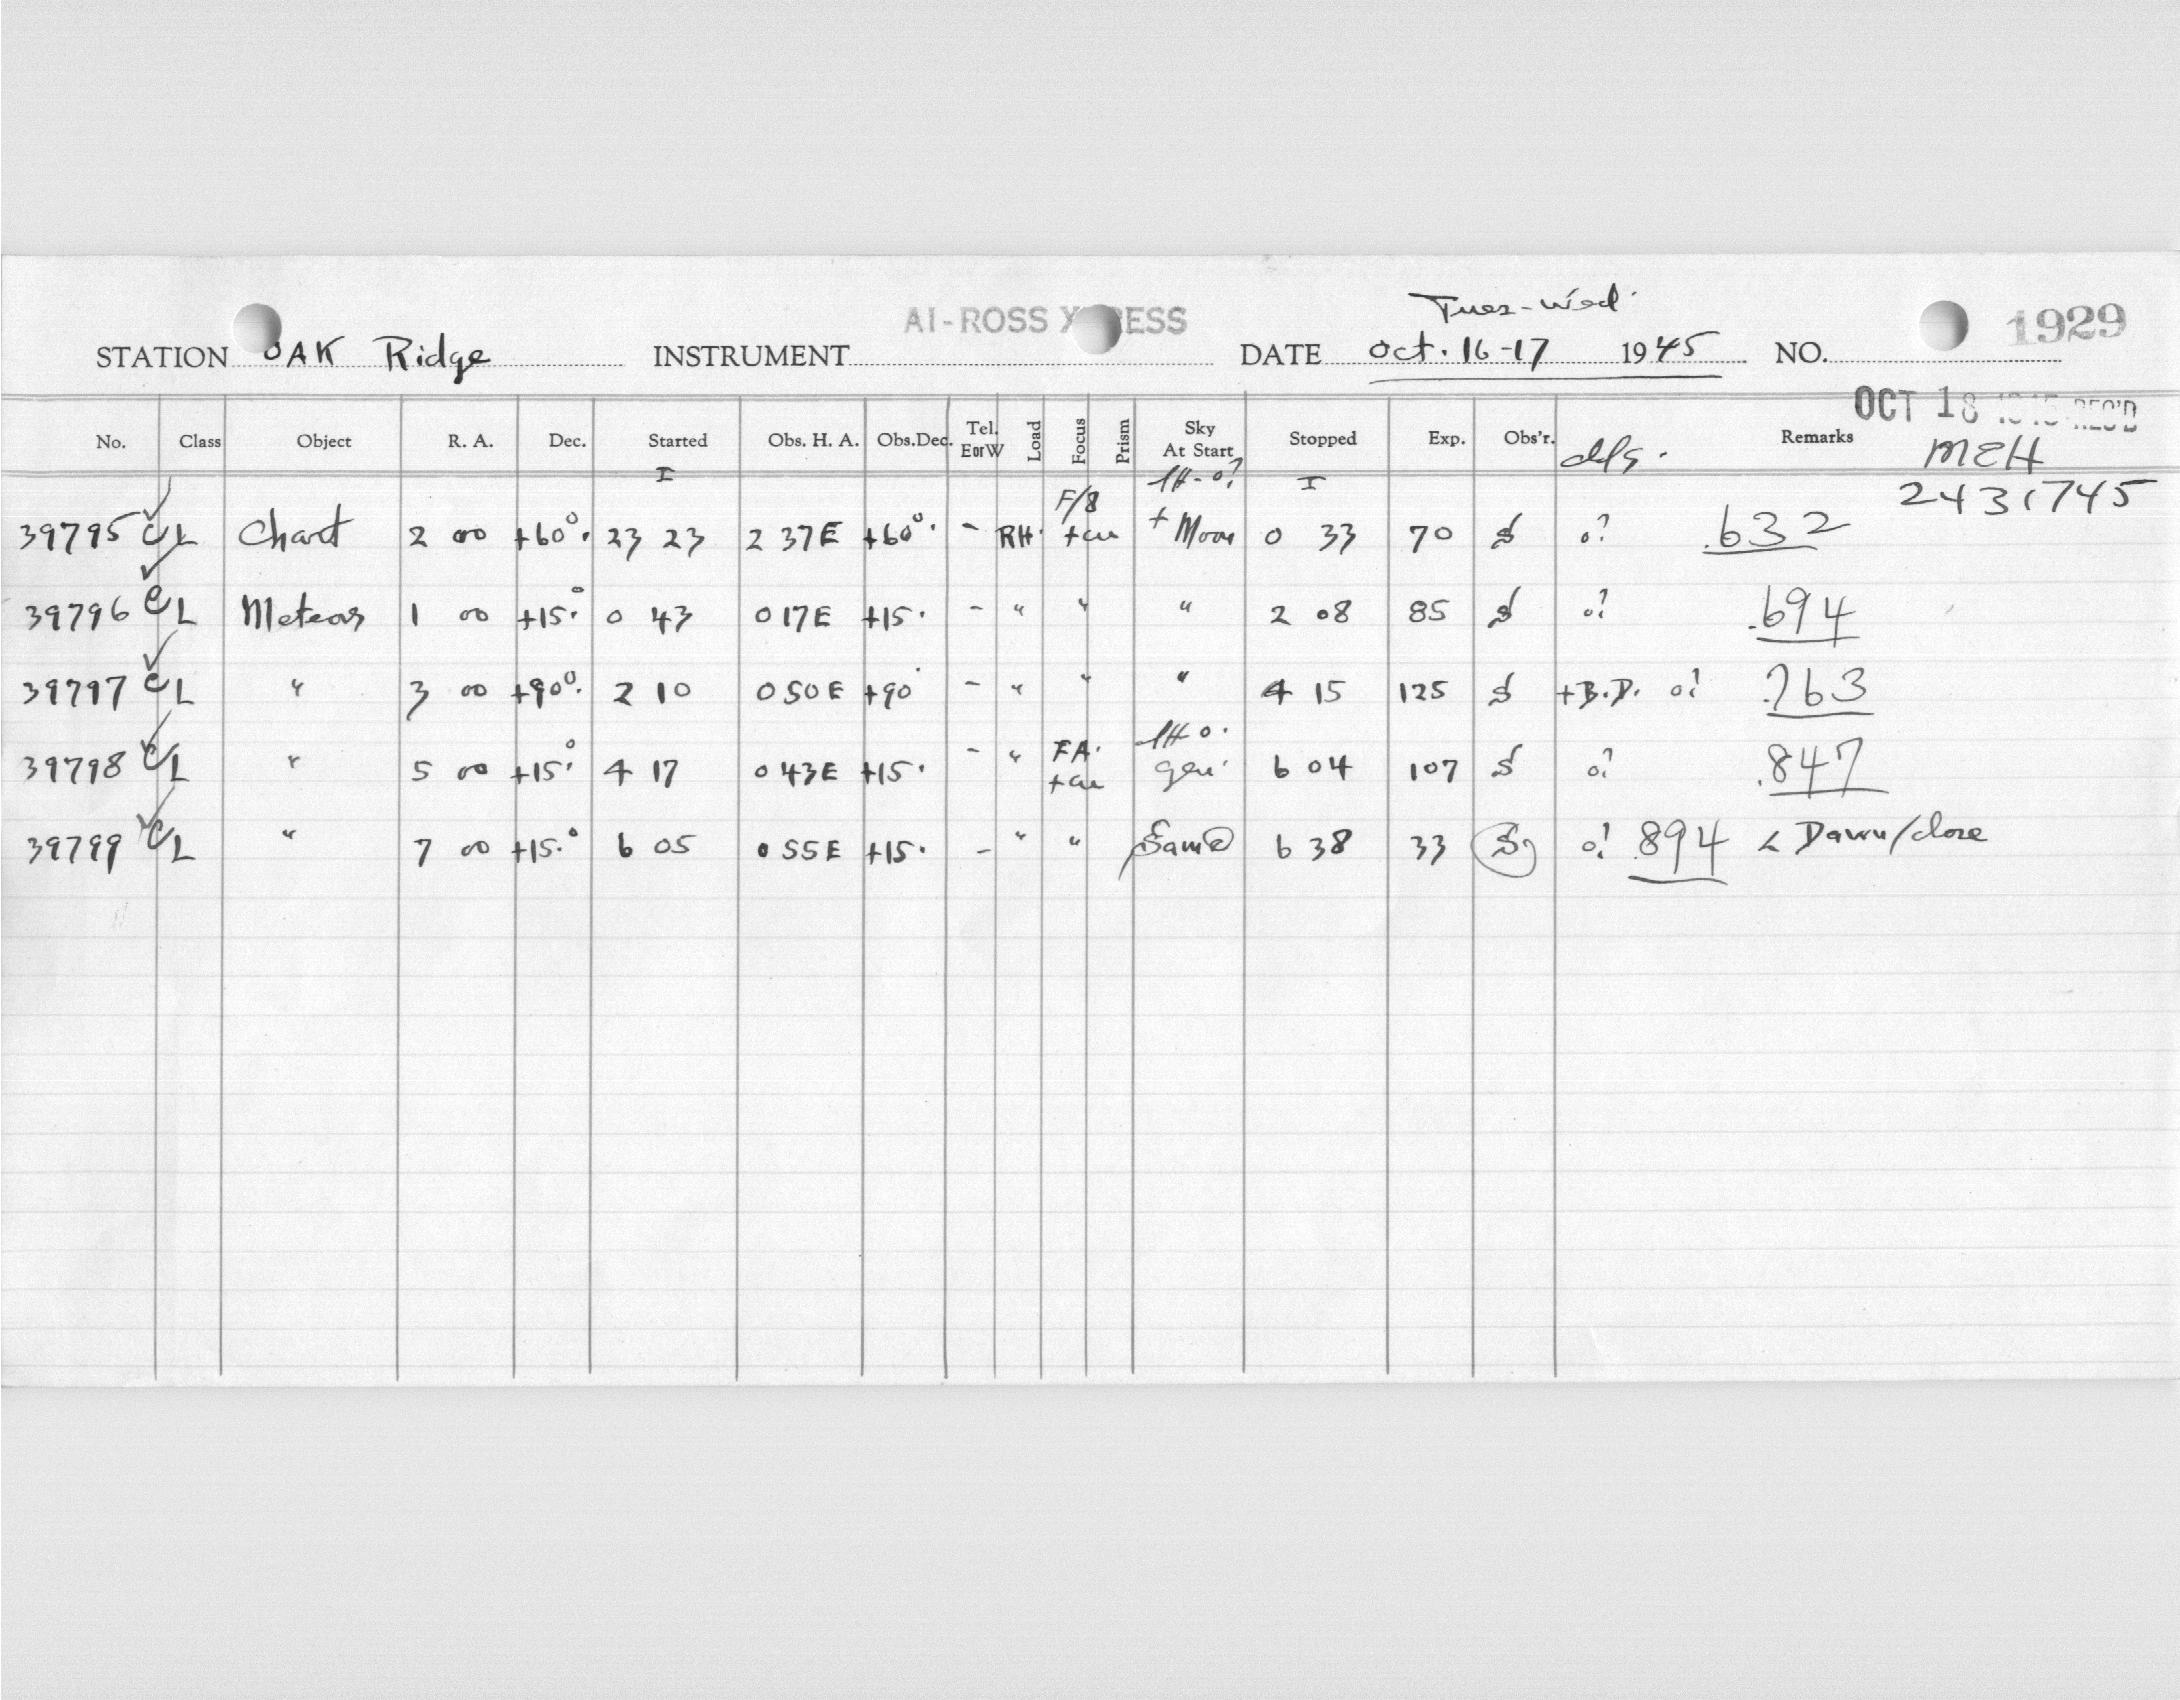 Tues-Wed.
AI-ROSS X ESS
1929
STATION OAK Ridge INSTRUMENT DATE Oct. 16-17 1945 NO.
OCT 18 1945 REC'D
No. Class Object R. A. Dec. Started Obs. H. A. Obs.Dec. Tel. E or W Load Focus Prism Sky At Start Stopped Exp. Obs'r. Remarks
MEH
I I
2431745
F/8
39795 CL Chart 2 00 +60°. 23 23 2 37E +60°. - RH. + Moon 0 33 70 S o? .632
39796 CL Meteors 1 00 +15.° 0 43 0 17E +15. - " " " 2 08 85 S o? .694
39797 CL " 3 00 +90°. 2 10 0 50E +90 - " " " 4 15 125 S +B.D. o? .763
FA.
39798 CL " 5 00 +15.° 4 17 0 43E +15. - " 6 04 107 S o? .847
39799 CL " 7 00 +15.° 6 05 0 55E +15. - " " Same 6 38 33 S o! .894 < Dawn/close